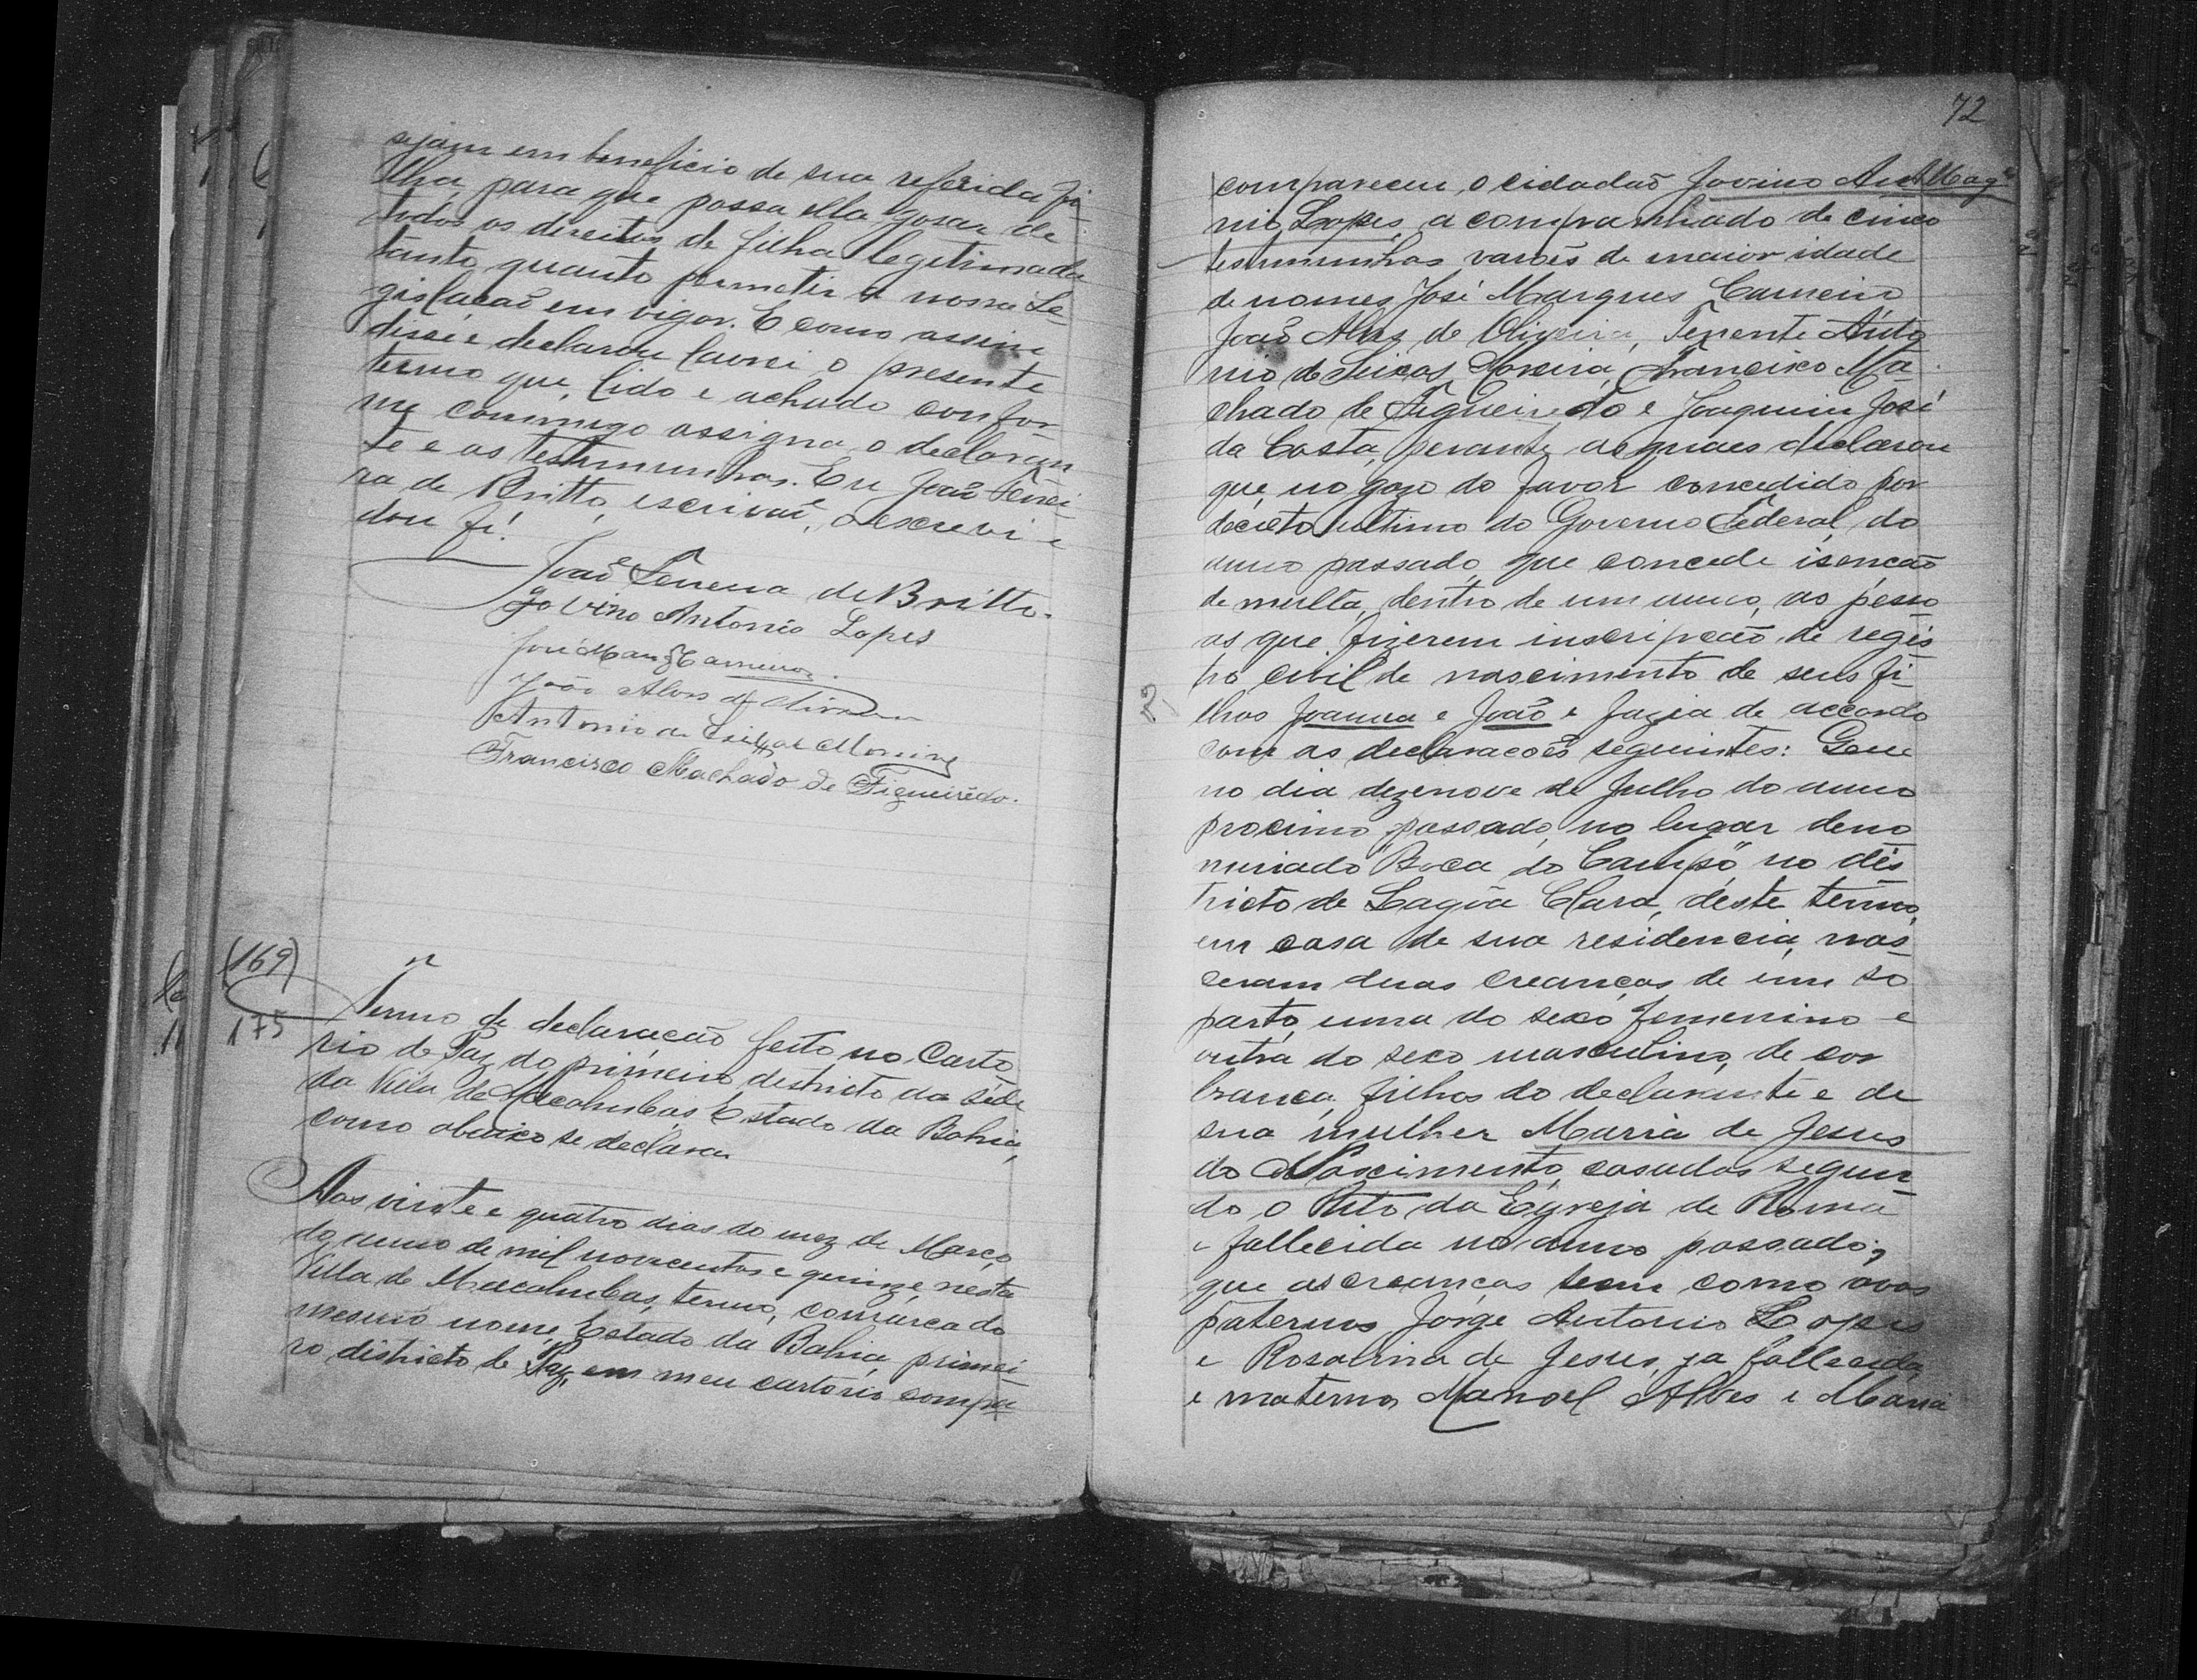 sejam em beneficio de sua referida fi-
lha, para que possa ella gosar de
todos os direitos de filha legitimada
tanto, quanto permetir a nossa Le-
gislacaõ em vigor. E como assim
disse e declarou lavrei o presente
termo que, lido e achado confor
me commigo assigna o declaran
te e as testimunhas. Eu João Ferrei
ra de Britto, escrivaõ, o escrevi e
dou fé!
João Ferreira de Britto.
Jovino Antonio Lopes
José Marq Carneiro
João Alves de Oliveira
Antonio de Seixas Moreira
Francisco Machado de Figueirêdo.
(169)
175
Termo de declaracaõ feito no Carto
rio de Paz do primeiro districto da Séde
da Villa de Macahubas, Estado da Bahia,
como abaixo se declara
Aos vinte e quatro dias do mez de Março
do anno de mil novecentos e quinze, nesta
Villa de Macahubas, termo, comarca do
mesmo nome, Estado da Bahia, primei-
ro districto de Paz, em meu cartorio compa
72
compareceu, o cidadaõ Jovino Anto
nio Lopes, acompanhado de cinco
testimunhas varoẽs de maior idade
de nomes José Marques Carneiro
João Alves de Oliveira, Tenente Anto
nio de Seixas Moreira, Francisco Ma-
chado de Figueiredo e Joaquim José
da Costa, perante as quaes declarou
que, no gozo do favor concedido por
decreto ultimo do Governo Federal, do
anno passado, que concede isencaõ
de multa, dentro de um anno, as pesso
as que fizerem inscripcaõ de regis
tro civil de nascimento de seus fi-
lhos Joanna e João e fazia de accordo
com as declaracoẽs seguintes: Que
no dia dezenove de Julho do anno
procimo passado, no lugar deno
minado "Boca do Campo", no dis
tricto de Lagôa Clara, deste termo,
em casa de sua residencia, nas
ceram duas creanças de um só
parto, uma do sexo femenino e
outra do sexo masculino, de cor
branca, filhos do declarante e de
sua mulher Maria de Jesus
do Nascimento, casados segun
do o Rito da Egreja de Roma
e fallecida no anno passado;
que as creanças tem como avos
paternos Jorge Antonio Lopes
e Rosalina de Jesus, ja fallecida
e maternos Manoel Alves e Maria